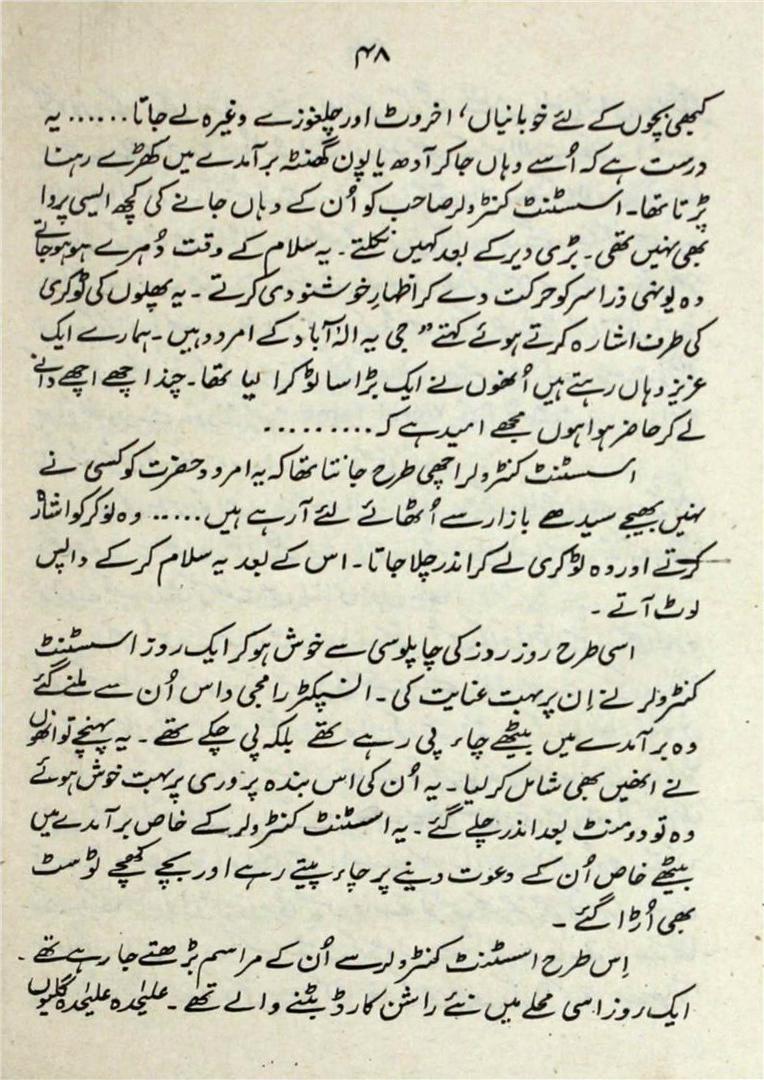 ۴۸
کبھی بچوں کے لئے خوبانیاں، اخروٹ اور چلغوزے وغیرہ لے جاتا...... یہ
درست ہے کہ اُسے وہاں جا کر آدھ یا پون گھنٹہ برآمدے میں کھڑے رہنا
پڑتا تھا۔ اسسٹنٹ کنٹرولر صاحب کو اُن کے وہاں جانے کی کچھ ایسی پروا
بھی نہیں تھی۔ بڑی دیر کے بعد کہیں نکلتے۔ یہ سلام کے وقت دُہرے ہو ہو جاتے
وہ یونہی ذرا سر کو حرکت دے کر اظہارِ خوشنودی کرتے۔ یہ پھلوں کی ٹوکری
کی طرف اشارہ کرتے ہوئے کہتے ”جی یہ الٰہ آباد کے امرود ہیں۔ ہمارے ایک
عزیز وہاں رہتے ہیں اُنھوں نے ایک بڑا سا ٹوکرا لیا تھا۔ چند اچھے اچھے دانے
لے کر حاضر ہوا ہوں مجھے امید ہے کہ..........
اسسٹنٹ کنٹرولر اچھی طرح جانتا تھا کہ یہ امرود حضرت کو کسی نے
نہیں بھیجے سیدھے بازار سے اُٹھائے لئے آ رہے ہیں..... وہ نوکر کو اشارہ
کرتے اور وہ ٹوکری لے کر اندر چلا جاتا۔ اس کے بعد یہ سلام کر کے واپس
لوٹ آتے۔
اسی طرح روز روز کی چاپلوسی سے خوش ہو کر ایک روز اسسٹنٹ
کنٹرولر نے اِن پر بہت عنایت کی۔ انسپکٹر رامجی داس اُن سے ملنے گئے
وہ برآمدے میں بیٹھے چاء پی رہے تھے بلکہ پی چکے تھے۔ یہ پہنچے تو انھوں
نے انھیں بھی شامل کر لیا۔ یہ اُن کی اس بندہ پروری پر بہت خوش ہوئے
وہ تو دو منٹ بعد اندر چلے گئے۔ یہ اسسٹنٹ کنٹرولر کے خاص برآمدے میں
بیٹھے خاص اُن کے دعوت دینے پر چاء پیتے رہے اور بچے کھچے ٹوسٹ
بھی اُڑا گئے۔
اِس طرح اسسٹنٹ کنٹرولر سے اُن کے مراسم بڑھتے جا رہے تھے۔
ایک روز اسی محلے میں نئے راشن کارڈ بٹنے والے تھے۔ علیحٰدہ علیحٰدہ گلیوں